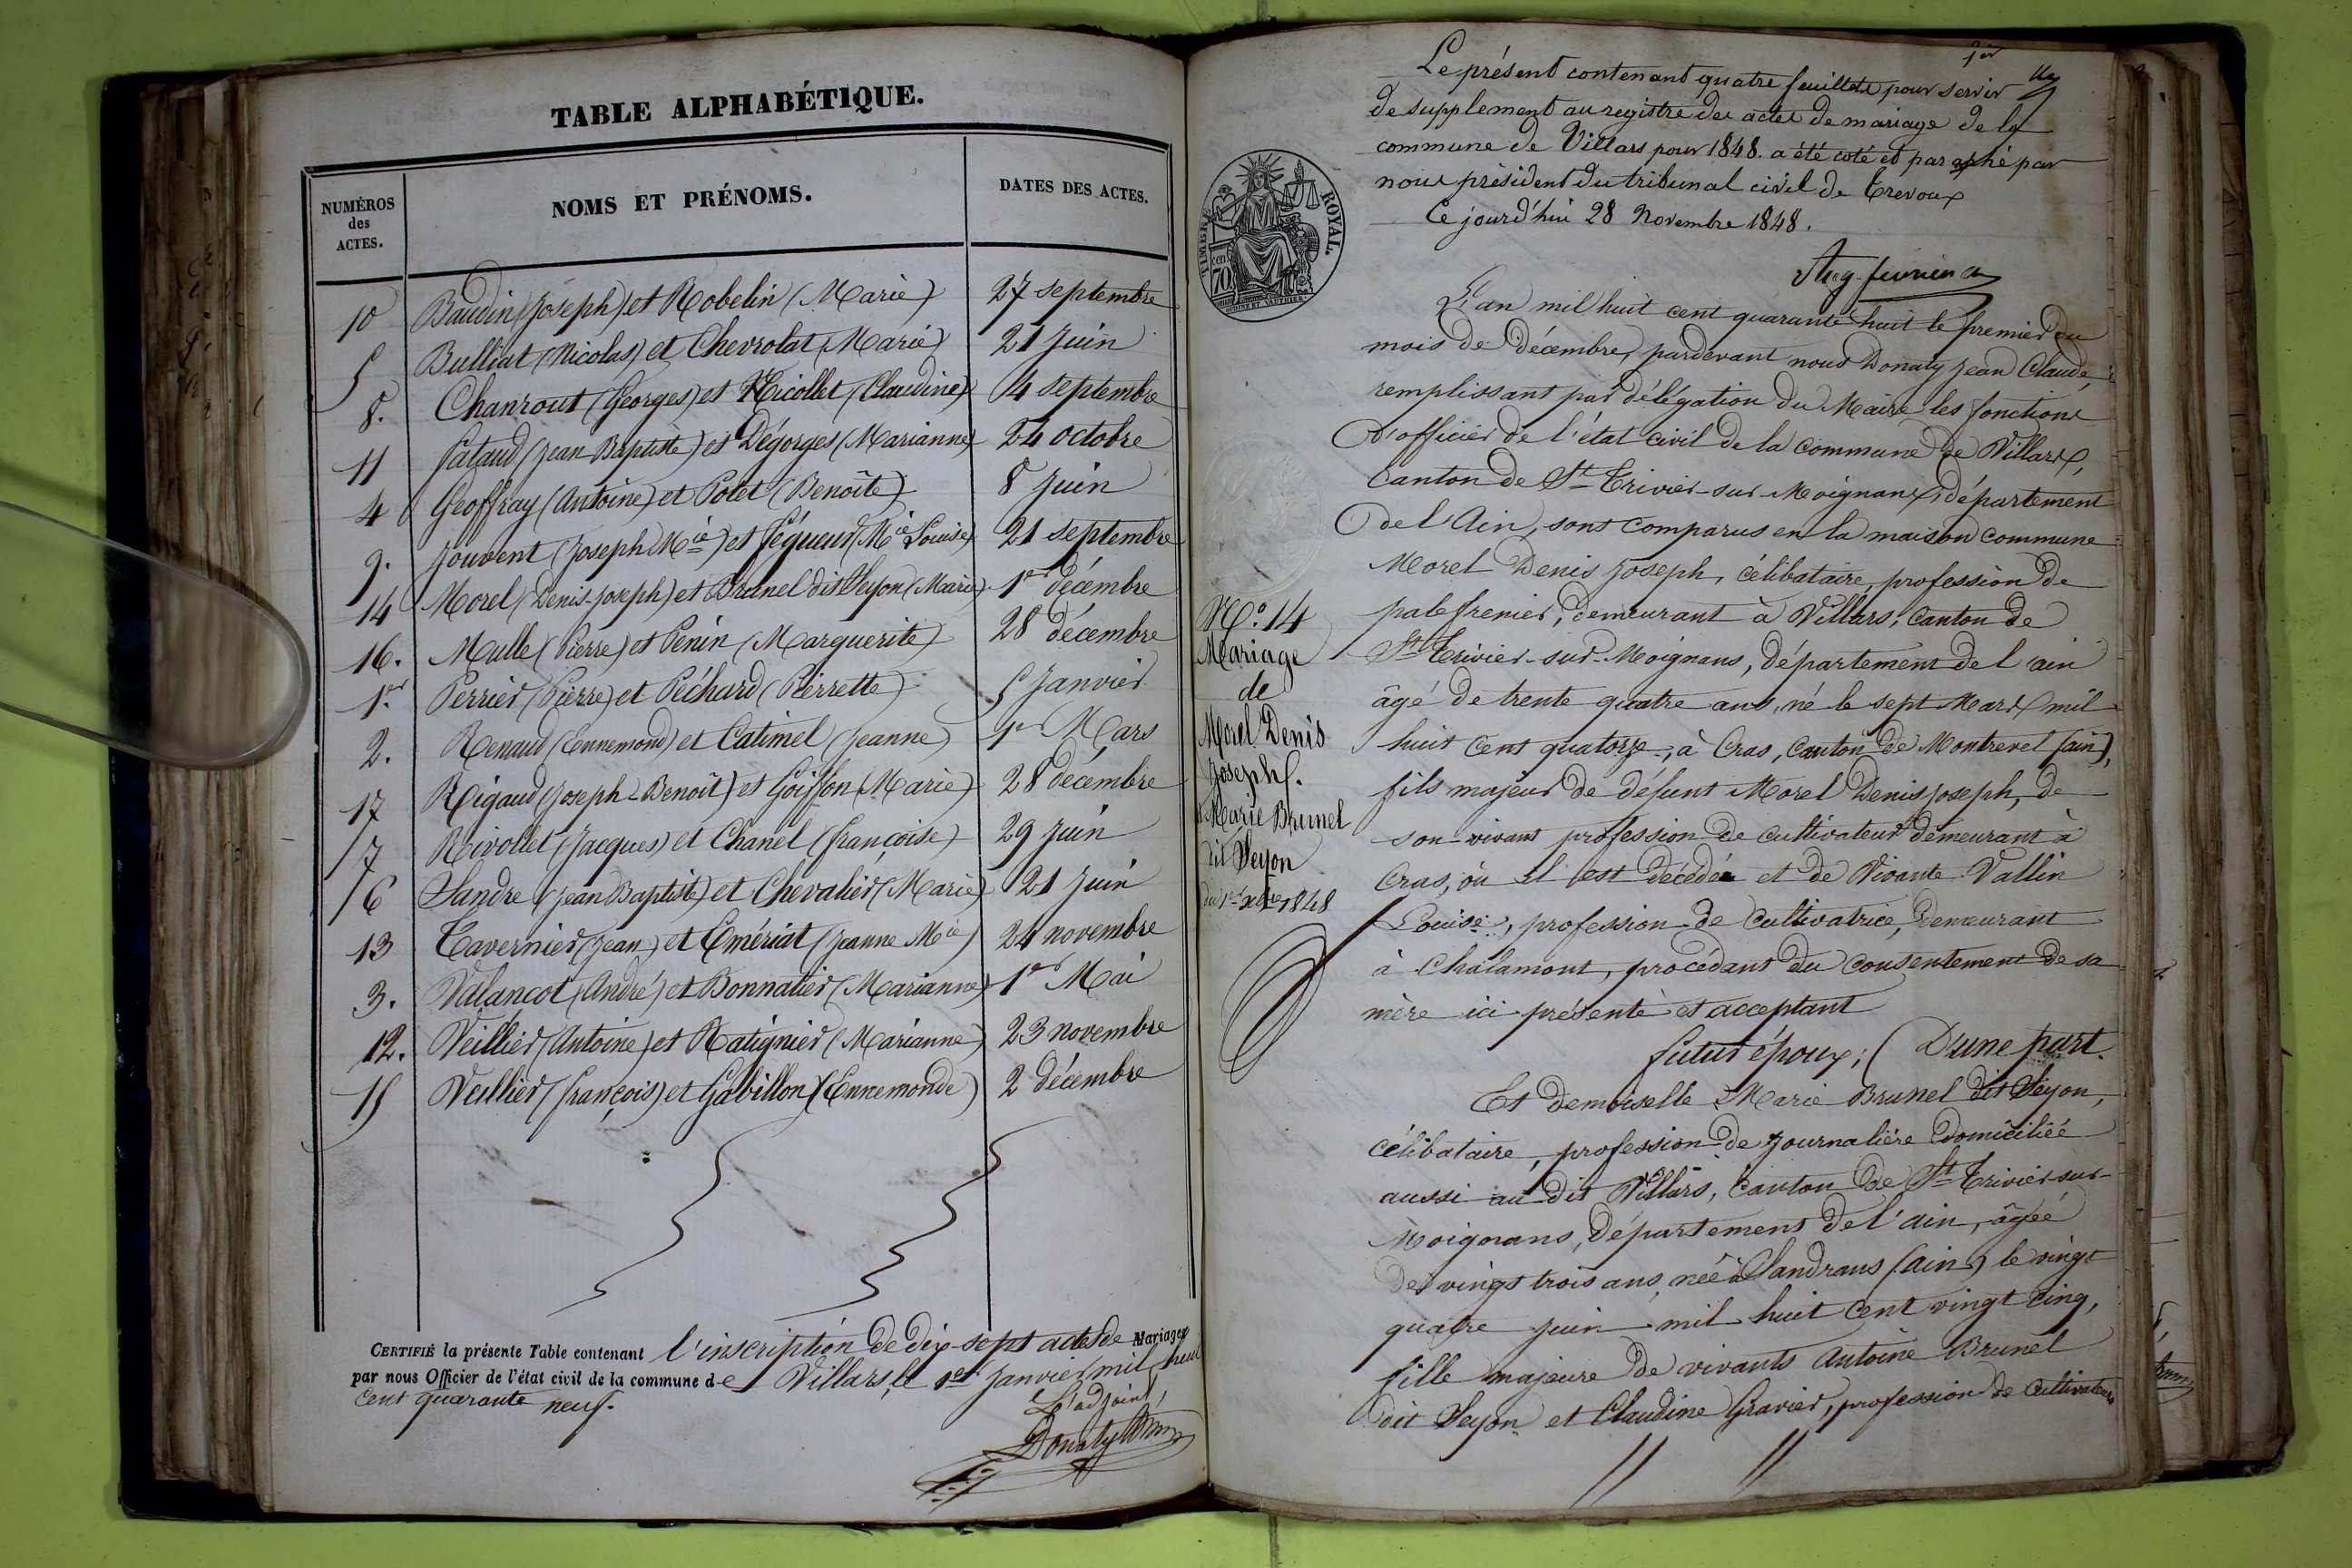 TABLE ALPHABÉTIQUE.
NUMÉROS des ACTES. NOMS ET PRÉNOMS. DATES DES ACTES.
10 Baudin (Joseph) et Robelin (Marie) 27 septembre
5 Bulliat (Nicolas) et Chevrolat (Marie) 21 Juin
8. Chanrout (Georges) et Nicollet (Claudine) 4 septembre
11 Fataud (Jean Baptiste) et Dégorges (Marianne) 24 octobre
4 Geoffray (Antoine) et Potet (Benoîte) 8 Juin
9. Jouvent (Joseph Mie) et Féqueur (Mie Louise) 21 septembre
14 Morel (Denis-Joseph) et Brunel dit Seyon (Marie) 1er décembre
16. Mulle (Pierre) et Penin (Marguerite) 28 décembre
1er Perrier (Pierre) et Péchard (Pierrette) 5 Janvier
2. Renaud (Ennemond) et Catimel (Jeanne) 1er Mars
17 Rigaud (Joseph-Benoît) et Goiffon (Marie) 28 décembre
7 Rivollet (Jacques) et Chanel (françoise) 29 Juin
6 Sandre (Jean Baptiste) et Chevalier (Marie) 21 Juin
13 Tavernier (Jean) et Emériat (Jeanne Mie) 24 novembre
3. Valançot (André) et Bonnatier (Marianne) 1er Mai
12. Veillier (Antoine) et Ratignier (Marianne) 23 novembre
15 Veillier (françois) et Gabillon (Ennemonde) 2 décembre
CERTIFIÉ la présente Table contenant l'inscription de dix-sept actes de Mariages
par nous Officier de l'état civil de la commune de Villars, le 1er Janvier mil huit
cent quarante neuf.
L'adjoint,
Donaty
1er
Le présent contenant quatre feuillets pour servir
de supplement au registre des actes de mariage de la
commune de Villars pour 1848. a été coté et paraphé par
nous président du tribunal civil de Trevoux
Ce jourd'hui 28 Novembre 1848.
TIMBRE ROYAL
70 cent
L'an mil huit cent quarante huit le premier du
mois de décembre, pardevant nous Donaty Jean Claude,
remplissant par délégation du Maire les fonctions
d'officier de l'état civil de la commune de Villars,
Canton de St Trivier-sur-Moignans, département
de l'Ain, sont comparus en la maison commune
Morel Denis Joseph, célibataire, profession de
palefrenier, demeurant à Villars, Canton de
St Trivier-sur-Moignans, département de l'ain
âgé de trente quatre ans, né le sept Mars mil
huit cent quatorze, à Cras, Canton de Montrevel (ain),
fils majeur de défunt Morel Denis Joseph, de
son vivant profession de cultivateur demeurant à
Cras, où il est décédé et de Vivante Vallin
Louise, profession de cultivatrice, demeurant
à Chalamont, procédant du consentement de sa
mère ici présente et acceptant
futur époux; D'une part.
Et demoiselle Marie Brunel dit Seyon,
célibataire, profession de journalière domiciliée
aussi au dit Villars, Canton de St Trivier-sur-
Moignans, Département de l'ain, âgée
de vingt trois ans, née à Sandrans (ain) le vingt
quatre juin mil huit cent vingt cinq,
fille majeure de vivants Antoine Brunel
dit Seyon et Claudine Gravier, profession de cultivateurs
No. 14
Mariage
de
Morel Denis
Joseph.
Marie Brunel
dit Seyon
du 1er xbre 1848